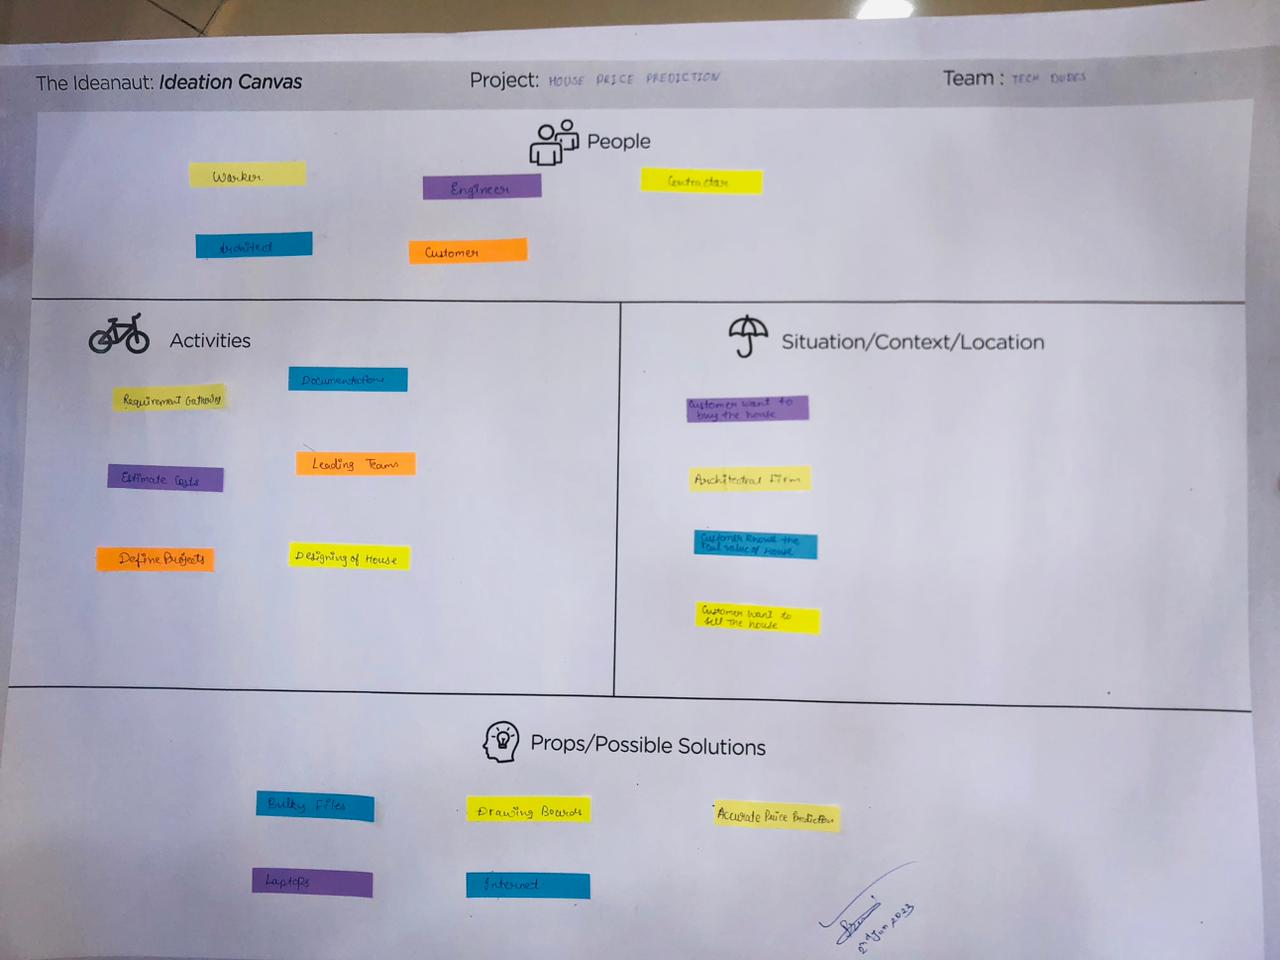 The Ideanaut: Ideation Canvas Project: HOUSE PRICE PREDICTION Team : TECH DUDES
People
Worker
Engineer
Contractor
Architect
Customer
Activities
Requirement Gathering
Documentations
Estimate Costs
Leading Teams
Define Projects
Designing of House
Situation/Context/Location
Customer want to
buy the house
Architectral Firm
Customer knows the
real value of House
Customer Want to
sell The house
Props/Possible Solutions
Bulky Files
Drawing Boards
Accurate Price Prediction
Laptops
Internet
2nd Jun 2023